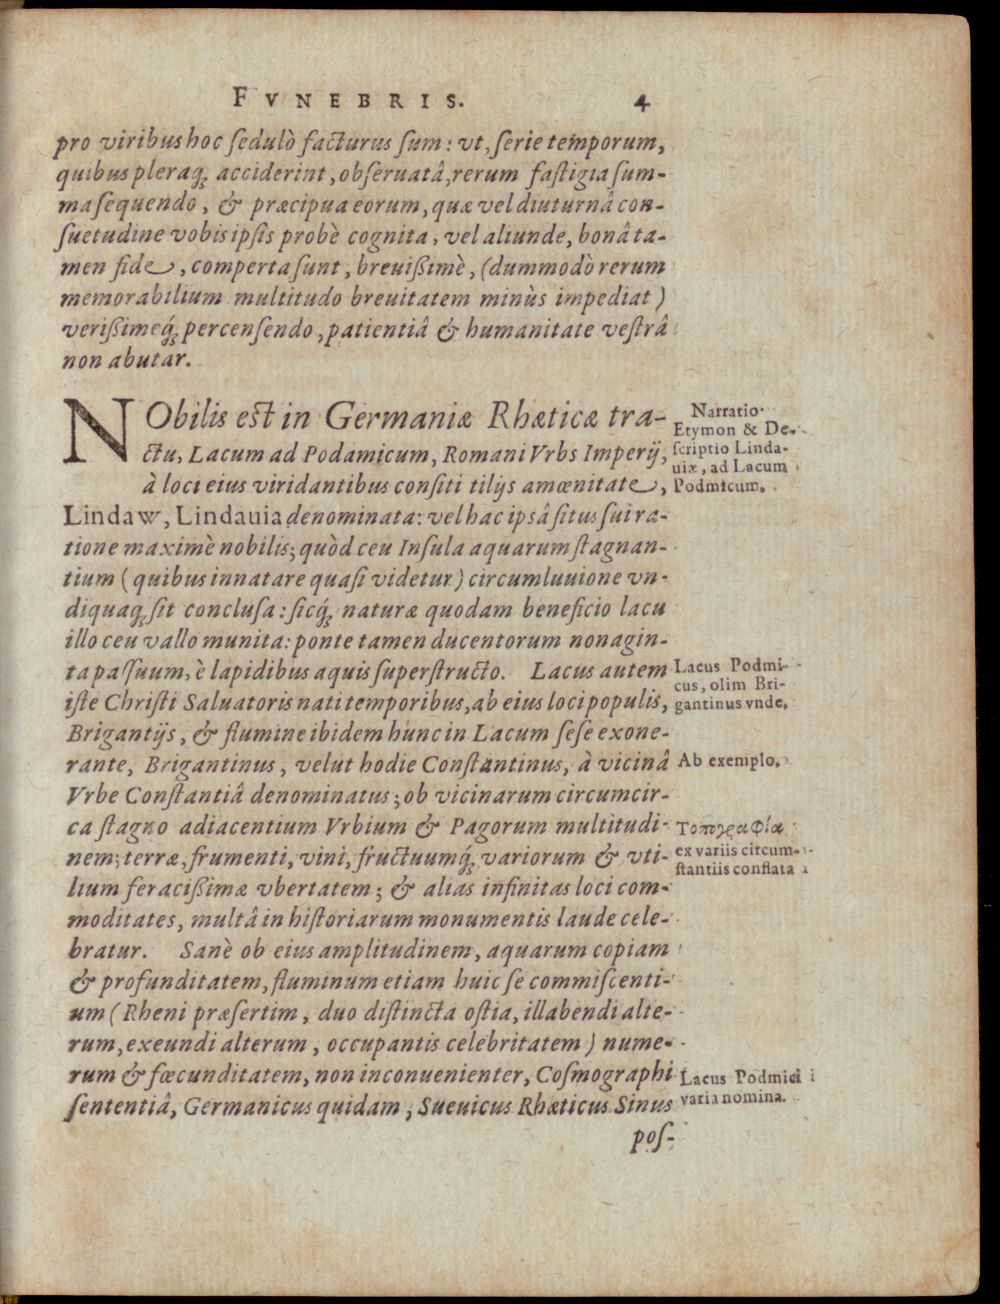 FVNEBRIS. 4
pro viribus hoc ſedulò facturus ſum: vt, ſerie temporum,
quibus pleraq́; acciderint, obſeruatâ, rerum faſtigia ſum-
ma ſequendo, & præcipua eorum, quæ vel diuturnâ con-
ſuetudine vobis ipſis probè cognita, vel aliunde, bonâ ta-
men fide, comperta ſunt, breuißimè, (dummodò rerum
memorabilium multitudo breuitatem minùs impediat)
verißimeq́; percenſendo, patientiâ & humanitate veſtrâ
non abutar.
NObilis est in Germaniæ Rhæticæ tra-
ctu, Lacum ad Podamicum, Romani Vrbs Imperij,
à loci eius viridantibus conſiti tilijs amœnitate,
Lindaw, Lindauia denominata: vel hac ipsâ ſitus ſui ra-
tione maximè nobilis; quòd ceu Inſula aquarum ſtagnan-
tium (quibus innatare quaſi videtur) circumluuione vn-
diquaq; ſit concluſa: ſicq́; naturæ quodam beneficio lacu
illo ceu vallo munita: ponte tamen ducentorum nonagin-
ta paſſuum, è lapidibus aquis ſuperſtructo. Lacus autem
iſte Chriſti Saluatoris nati temporibus, ab eius loci populis,
Brigantijs, & flumine ibidem hùnc in Lacum ſeſe exone-
rante, Brigantinus, velut hodie Conſtantinus, à vicinâ
Vrbe Conſtantiâ denominatus; ob vicinarum circumcir-
ca ſtagno adiacentium Vrbium & Pagorum multitudi-
nem; terræ, frumenti, vini, fructuumq́; variorum & vti-
lium feracißimæ vbertatem; & alias infinitas loci com-
moditates, multâ in hiſtoriarum monumentis laude cele-
bratur. Sanè ob eius amplitudinem, aquarum copiam
& profunditatem, fluminum etiam huic ſe commiſcenti-
um (Rheni præſertim, duo diſtincta oſtia, illabendi alte-
rum, exeundi alterum, occupantis celebritatem) nume-
rum & fœcunditatem, non inconuenienter, Coſmographi
ſententiâ, Germanicus quidam, Sueuicus Rhæticus Sinus
poſ-
Narratio
Etymon & De-
ſcriptio Linda-
uiæ, ad Lacum
Podmicum.
Lacus Podmi-
cus, olim Bri-
gantinus vnde.
Ab exemplo.
Τοπογραφία
ex variis circum-
ſtantiis conflata
Lacus Podmici
varia nomina.